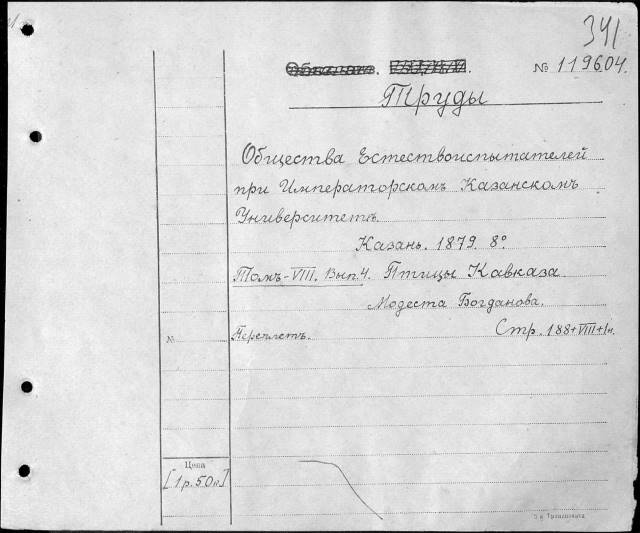 341
№ 119604.
Труды
Общества Естествоиспытателей
при Императорскомъ Казанскомъ
Университетѣ.
Казань. 1879. 8°
Томъ-VIII. Вып. 4. Птицы Кавказа
Модеста Богданова.
№ Переплетъ. Стр. 188+VIII+I н.
Цена
[1 р. 50 к]